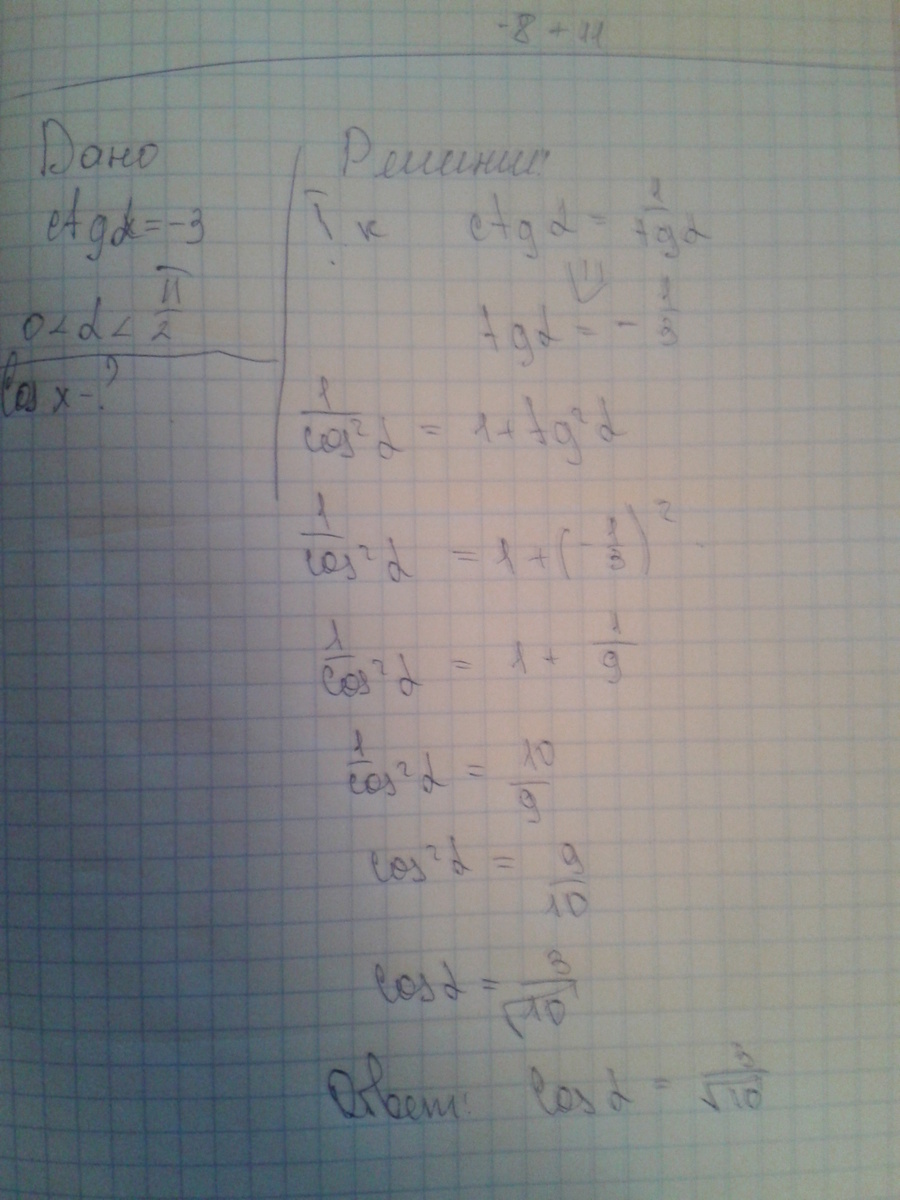 -8 + 11
Дано
ctgα = -3
0 < α < π/2
cos x - ?
Решение:
Т.к ctg α = 1/tgα
⇓
tgα = - 1/3
1/cos²α = 1 + tg²α
1/cos²α = 1 + (-1/3)²
1/cos²α = 1 + 1/9
1/cos²α = 10/9
cos²α = 9/10
cosα = 3/√10
Ответ: cos α = 3/√10